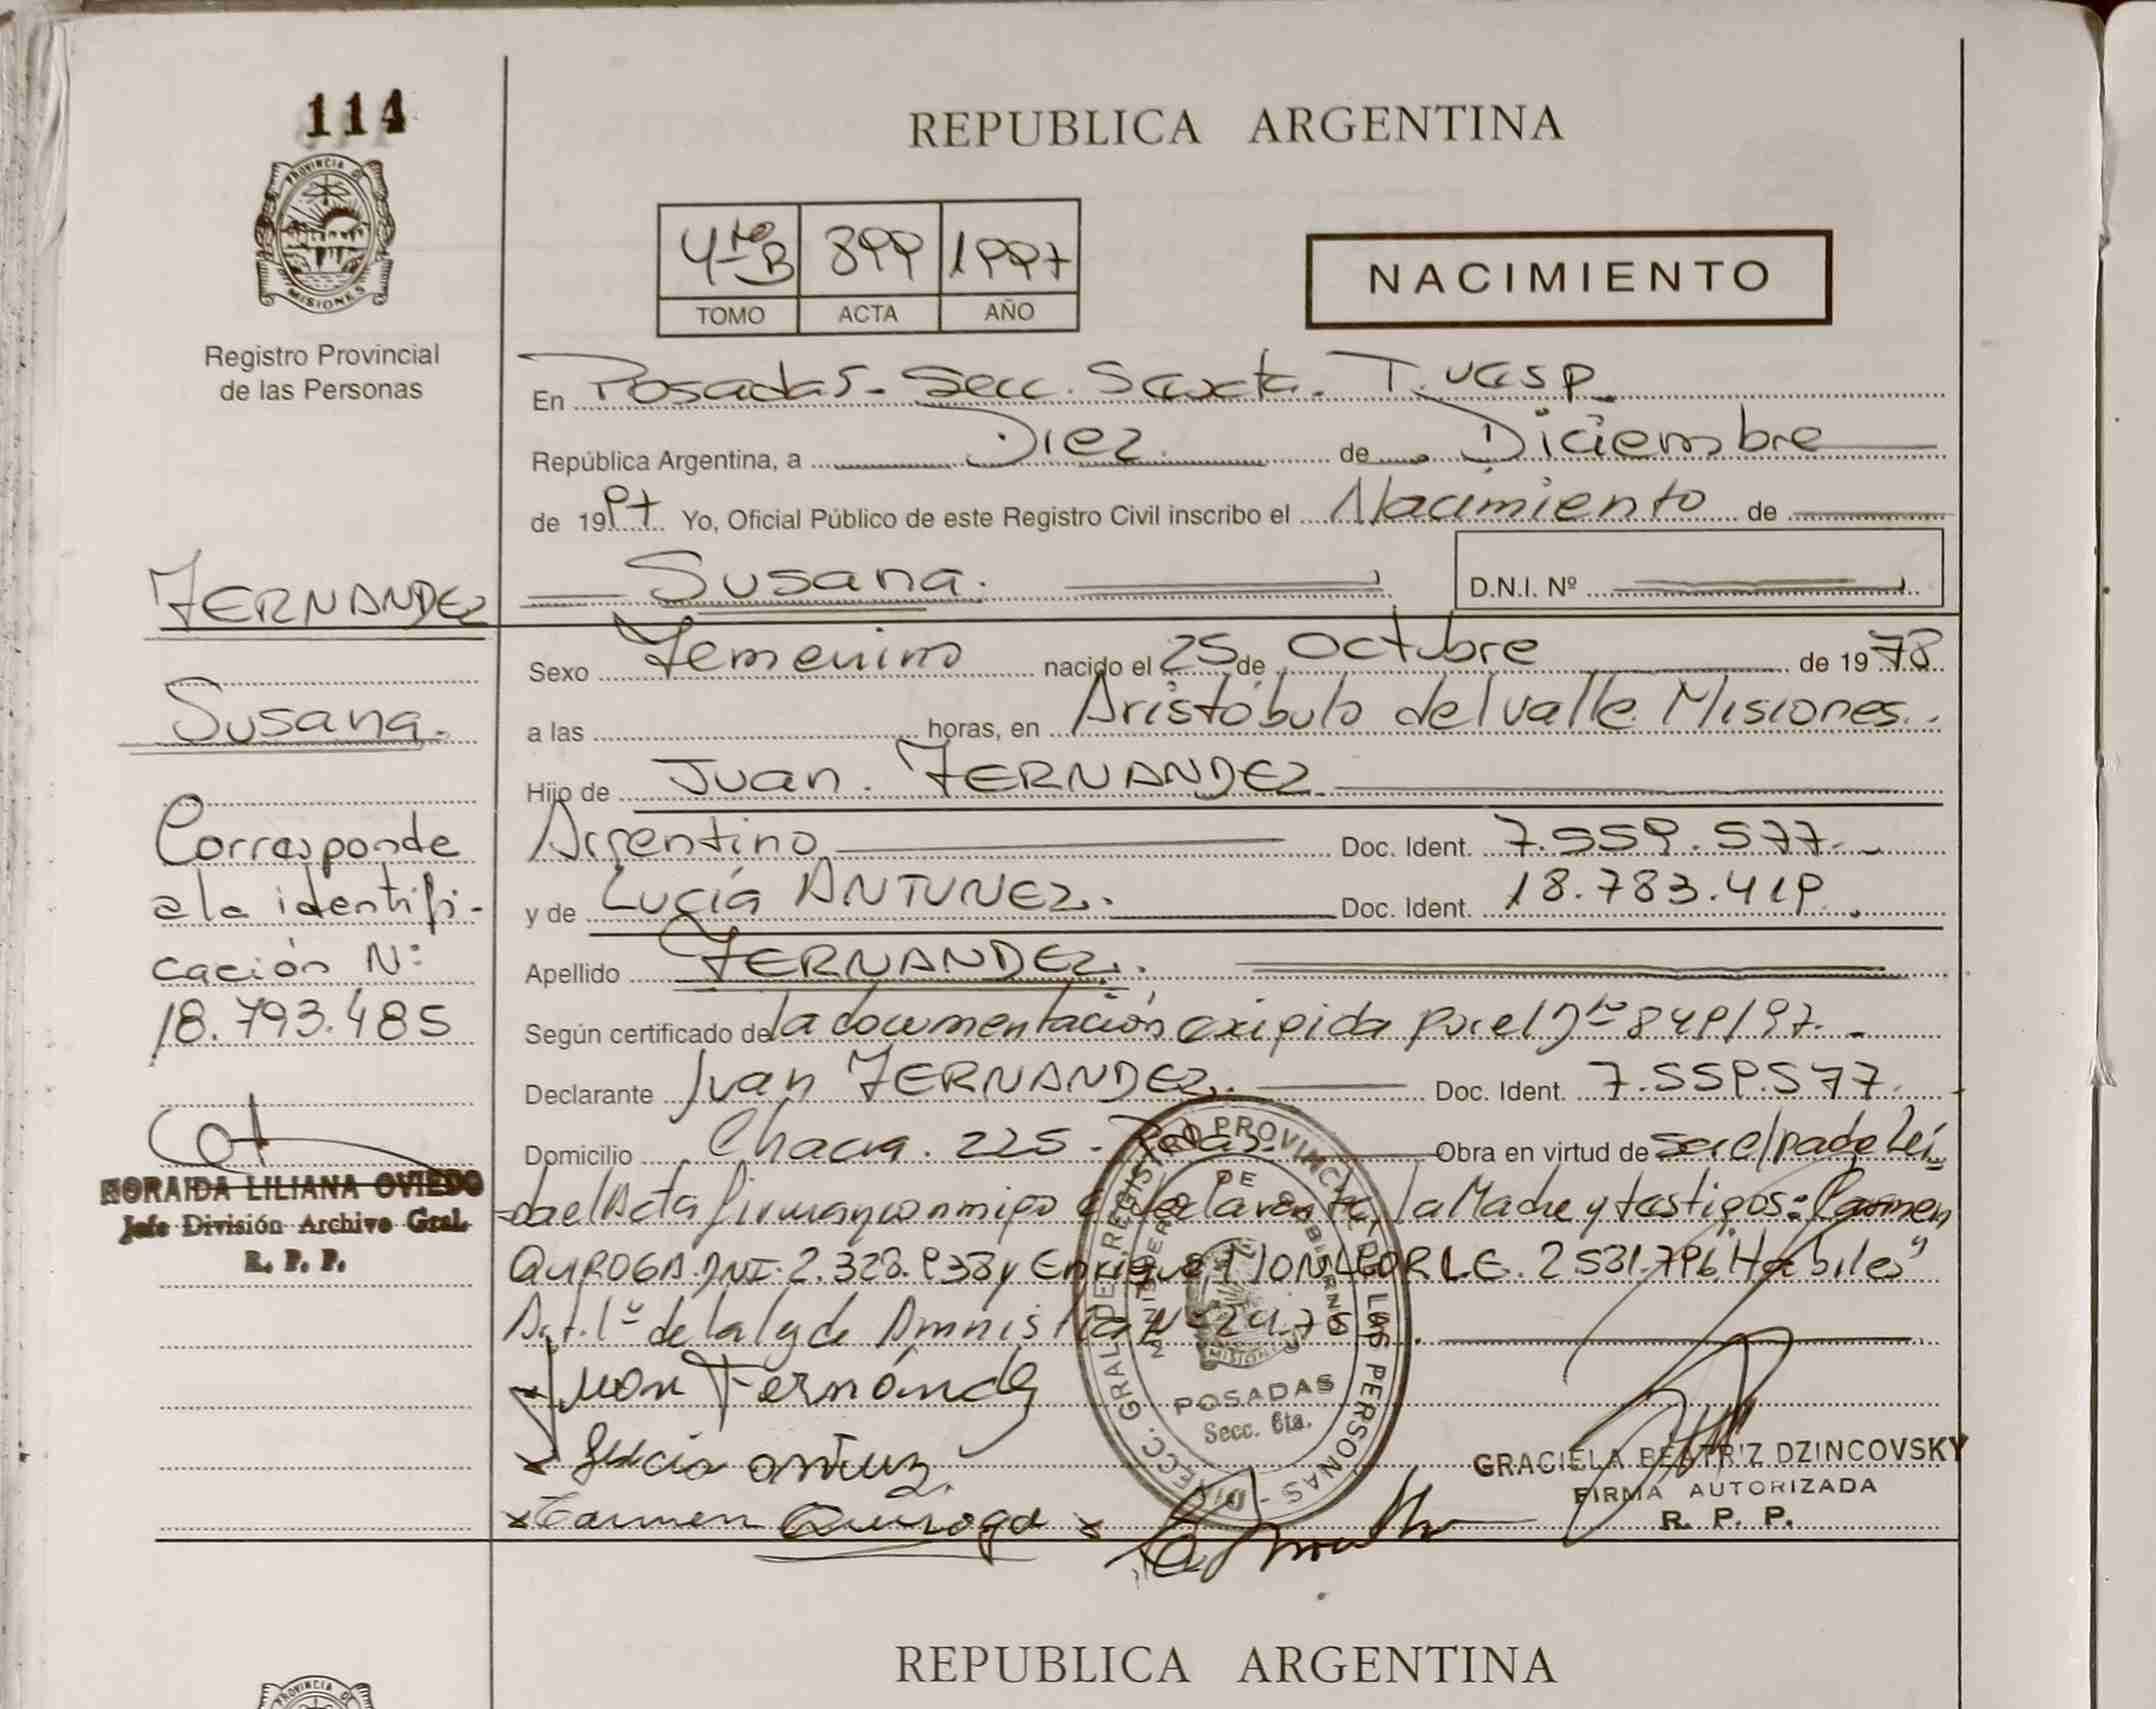 114
REPUBLICA ARGENTINA
PROVINCIA DE
MISIONES
Registro Provincial
de las Personas
4to B 899 1997
TOMO ACTA AÑO
NACIMIENTO
En Posadas - Secc. Sexta.
República Argentina, a Diez de Diciembre
de 1997 Yo, Oficial Público de este Registro Civil inscribo el Nacimiento de
Susana. D.N.I. Nº
FERNANDEZ
Susana.
Corresponde
a la identifi-
cación Nº
18.793.485
NORAIDA LILIANA OVIEDO
Jefe División Archivo Gral.
R. P. P.
Sexo Femenino nacido el 25 de Octubre de 1978
a las horas, en Aristóbulo del valle Misiones.
Hijo de Juan FERNANDEZ
Argentino Doc. Ident. 7.559.577.
y de Lucía ANTUNEZ. Doc. Ident. 18.783.419.
Apellido FERNANDEZ.
Según certificado de la documentación exigida por el Dto 849/97.
Declarante Juan FERNANDEZ. Doc. Ident. 7.559.577.
Domicilio Chacra 225 - Pdas. Obra en virtud de ser el padre Leí
da el Acta firman conmigo el declarante, la Madre y testigos: Carmen
QUIROGA DNI. 2.328.938 y Enrique L.E. 2531.796 "Hábiles"
Art. 1º de la ley de Amnistía Nº
Juan Fernández
Carmen Quiroga
DIRECC. GRAL. DE REGISTRO PROVINCIAL DE LAS PERSONAS
MINISTERIO DE GOBIERNO
MISIONES
POSADAS
Secc. 6ta.
GRACIELA BEATRIZ DZINCOVSKY
FIRMA AUTORIZADA
R. P. P.
REPUBLICA ARGENTINA
PROVINCIA DE